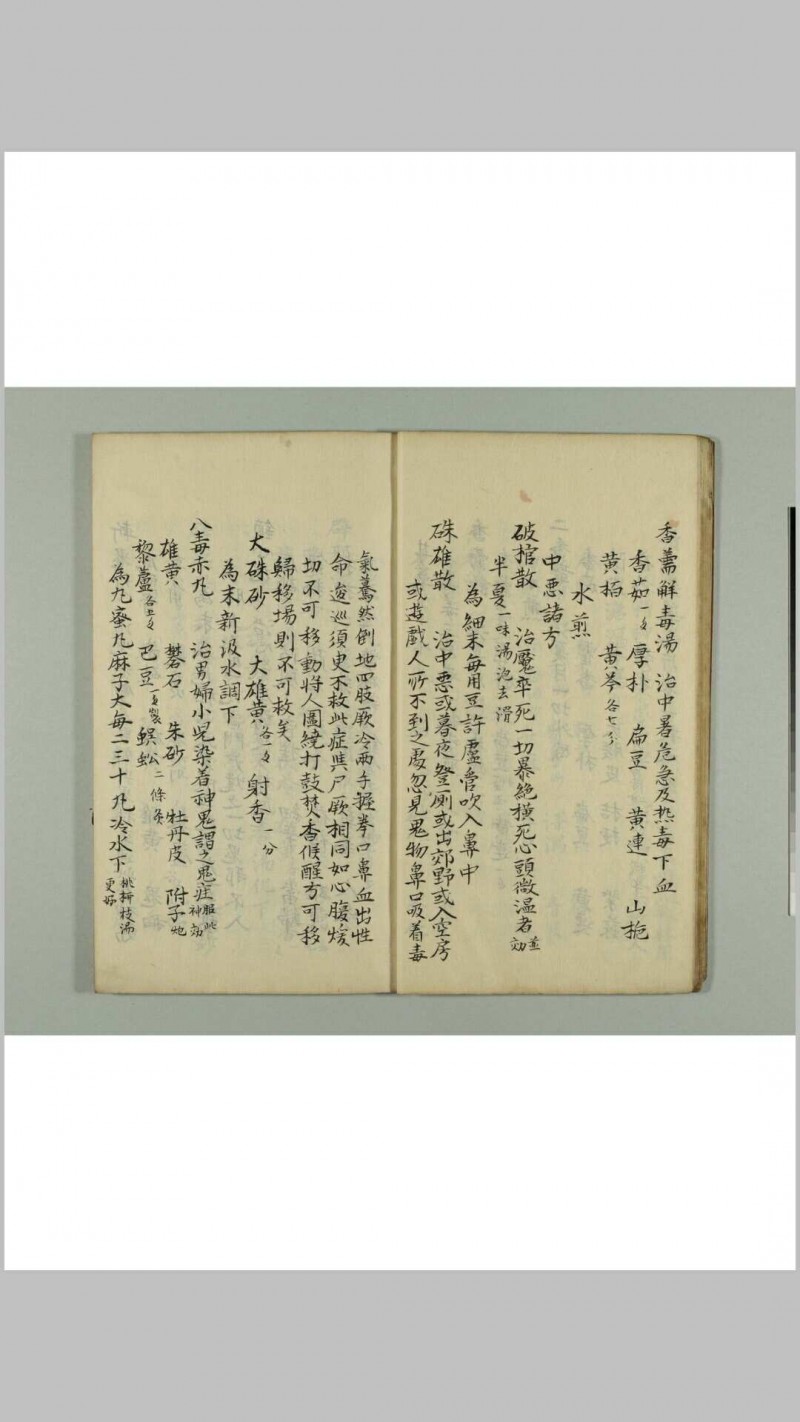 香薷解毒湯　治中暑危急及热毒下血
香茹一戋　厚朴　扁豆　黄連　山梔
黄栢　黄芩各七分
水煎
中悪諸方
破棺散　治魘卒死一切暴絶横死心頭微温者並効
半夏一味湯泡去滑
為細末毎用豆許虚管吹入鼻中
硃雄散　治中悪或暮夜登厠或出郊野或入空房
或遊戲人所不到之處忽見鬼物鼻口吸着毒
氣驀然倒地四肢厥冷兩手握拳口鼻血出性
命逡巡須臾不救此症與尸厥相同如心腹煖
切不可移動將人圍繞打鼓焚香候醒方可移
歸移場則不可救矣
大硃砂　大雄黄各一戋　射香一分
為末新汲水調下
八毒赤丸　治男婦小児染着神鬼謂之鬼疰服此神効
雄黄　礬石　朱砂　牡丹皮　附子炮
黎蘆各五戋　巴豆一戋製　蜈蚣二條炙
為丸蜜丸麻子大毎二三十丸冷水下桃枝湯更好